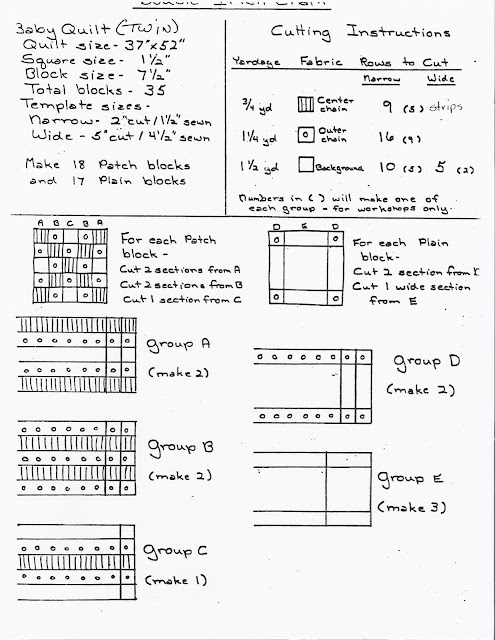 Double Irish Chain
Baby Quilt (TWIN)
Quilt size - 37"x52"
Square size - 1½"
Block size - 7½"
Total blocks - 35
Template sizes -
Narrow - 2"cut/1½" sewn
Wide - 5"cut/4½" sewn
Make 18 Patch blocks
and 17 Plain blocks
Cutting Instructions
Yardage Fabric Rows to Cut
Narrow Wide
¾ yd Center chain 9 (5) strips
1¼ yd Outer chain 16 (9)
1½ yd Background 10 (5) 5 (2)
Numbers in ( ) will make one of
each group - for workshops only.
A B C B A
For each Patch
block -
Cut 2 sections from A
Cut 2 sections from B
Cut 1 section from C
D E D
For each Plain
block -
Cut 2 section from
Cut 1 wide section
from E
Group A
(make 2)
Group B
(make 2)
Group C
(make 1)
Group D
(make 2)
Group E
(make 3)